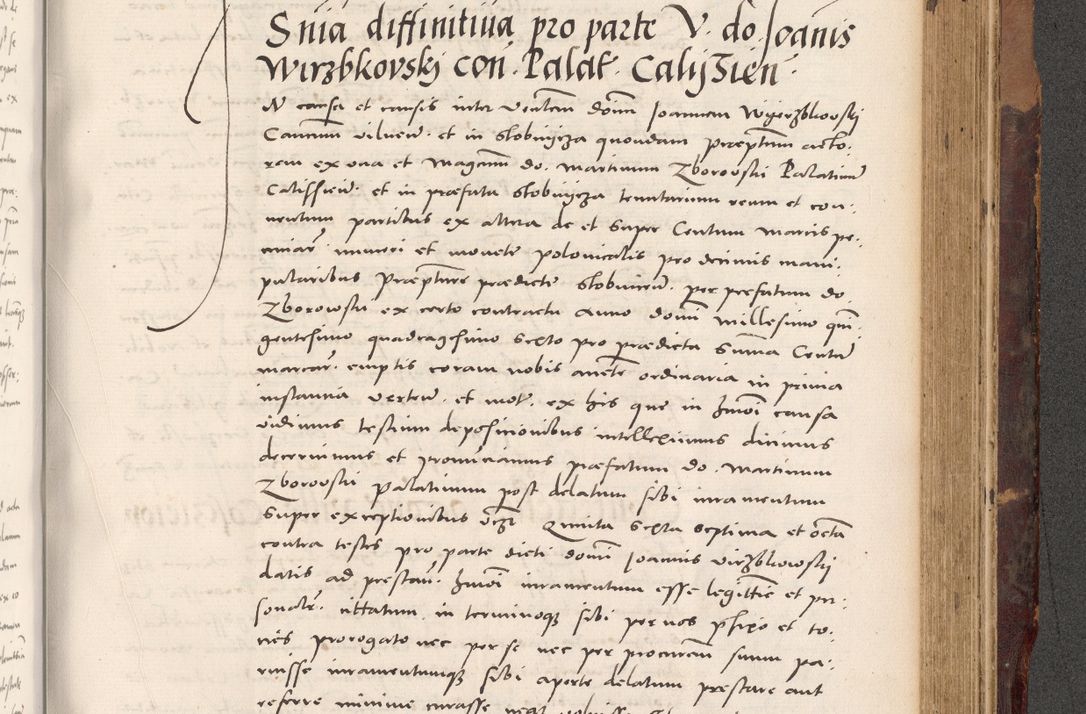 Snia diffinitiva pro parte V. do. Joanis
Wirzbkovskj con. Palat. Calissien.
IN causa et causis inter Vnlem domi Joannem Wyerzbkovskj
Canonicum viluen. et in Slobinyza quondam præptum acto.
rem ex vna et Magcum do. Martinum Zborovski Palatinum
Calissien. et in præfata Slobinyza tenutarium reum et con.
uentum partibus ex altera de et super Centum marcis pe.
cuniar. numeri et monete polonicalis pro decimis mani.
pularibus præpture prædicte Slobinicen. per prefatum do.
Zborowski ex certo contractu Anno domi millesimo quin.
gentesimo quadragesimo sexto pro prædicta Summa Centum
marcar. emptis coram nobis aucte ordinaria in prima
instantia verten. et mot. ex his que in hmoi causa
vidimus testium depositionibus intelleximus dicimus
decernimus et pronunciamus præfatum do. Martinum
Zborovski Palatinum post delatum sibi iuramentum
super exceptionibus Quinta sexta septima et octa
contra testes pro parte dicti domi Joannis Virzbkowskj
datis ad prestan. hmoi iuramentum esse legittime et per.
sonalr. citatum in terminoque sibi per nos pfixo et to.
ties prorogato nec per se nec per procurem suum pa.
ruisse iuramentumque sibi aperte delatum prestare aut
referre minime curasse